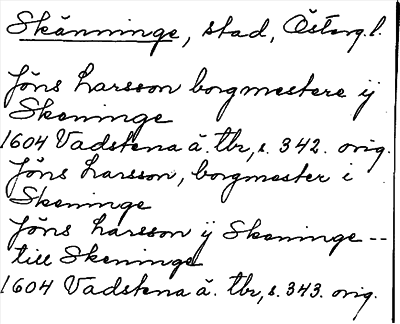 Skänninge, stad, Österg.l.
Jöns Larsson borgmestere ij
Skeninge
1604 Vadstena ä. tbr, s. 342. orig.
Jöns Larsson, borgmester i
Skeninge
Jöns Larsson ij Skeninge --
till Skeninge
1604 Vadstena ä. tbr, s. 343. orig.